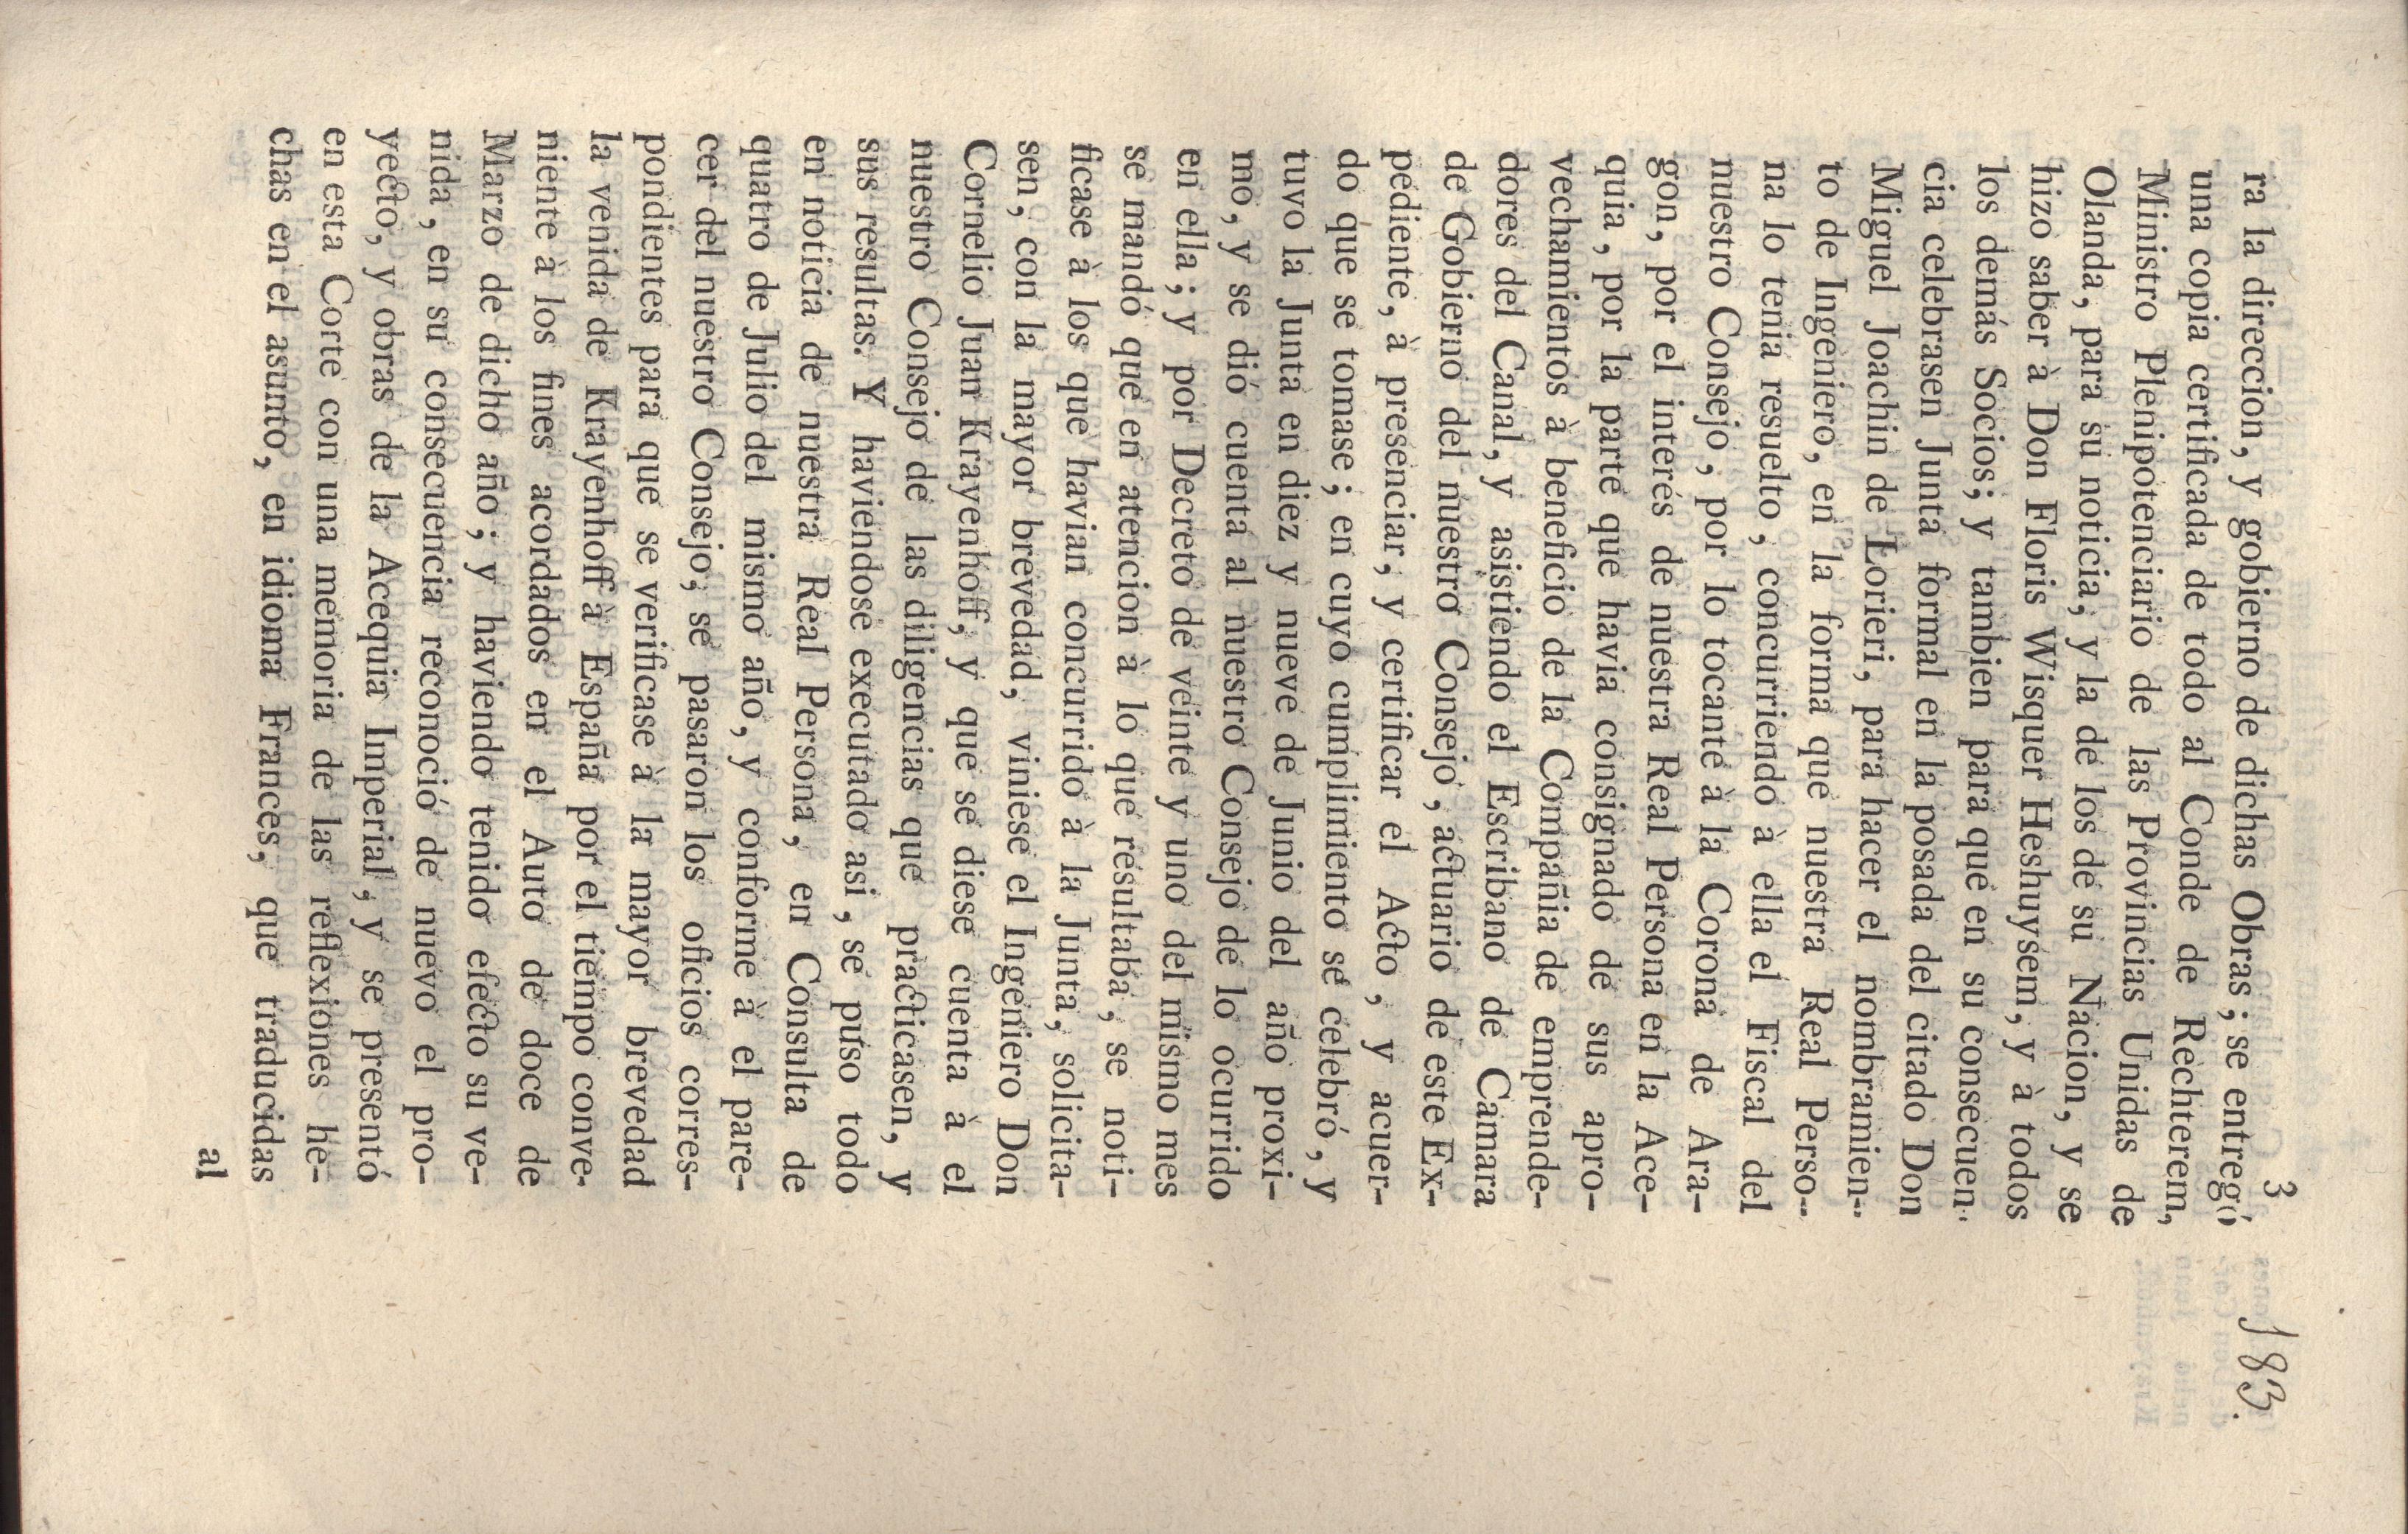 3
183.
ra la direccion, y gobierno de dichas Obras; se entregó
una copia certificada de todo al Conde de Rechterem,
Ministro Plenipotenciario de las Provincias Unidas de
Olanda, para su noticia, y la de los de su Nacion, y se
hizo saber à Don Floris Wisquer Heshuysem, y à todos
los demás Socios; y tambien para que en su consecuen-
cia celebrasen Junta formal en la posada del citado Don
Miguel Joachin de Lorieri, para hacer el nombramien-
to de Ingeniero, en la forma que nuestra Real Perso-
na lo tenia resuelto, concurriendo à ella el Fiscal del
nuestro Consejo, por lo tocante à la Corona de Ara-
gon, por el interés de nuestra Real Persona en la Ace-
quia, por la parte que havia consignado de sus apro-
vechamientos à beneficio de la Compañia de emprende-
dores del Canal, y asistiendo el Escribano de Camara
de Gobierno del nuestro Consejo, actuario de este Ex-
pediente, à presenciar, y certificar el Acto, y acuer-
do que se tomase; en cuyo cumplimiento se celebró, y
tuvo la Junta en diez y nueve de Junio del año proxi-
mo, y se dió cuenta al nuestro Consejo de lo ocurrido
en ella; y por Decreto de veinte y uno del mismo mes
se mandó que en atencion à lo que resultaba, se noti-
ficase à los que havian concurrido à la Junta, solicita-
sen, con la mayor brevedad, viniese el Ingeniero Don
Cornelio Juan Krayenhoff, y que se diese cuenta à el
nuestro Consejo de las diligencias que practicasen, y
sus resultas. Y haviendose executado asi, se puso todo
en noticia de nuestra Real Persona, en Consulta de
quatro de Julio del mismo año, y conforme à el pare-
cer del nuestro Consejo, se pasaron los oficios corres-
pondientes para que se verificase à la mayor brevedad
la venida de Krayenhoff à España por el tiempo conve-
niente à los fines acordados en el Auto de doce de
Marzo de dicho año; y haviendo tenido efecto su ve-
nida, en su consecuencia reconoció de nuevo el pro-
yecto, y obras de la Acequia Imperial, y se presentó
en esta Corte con una memoria de las reflexiones he-
chas en el asunto, en idioma Frances, que traducidas
al